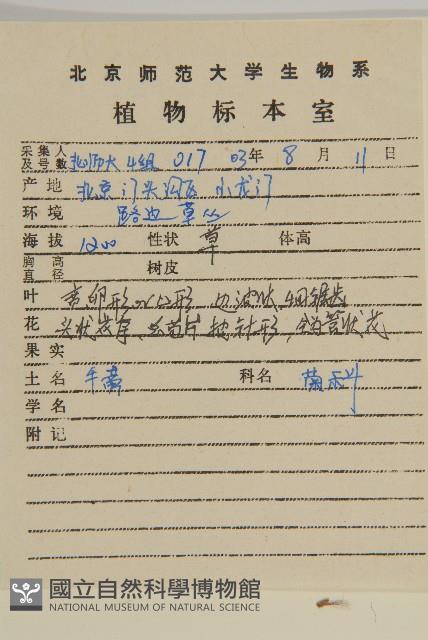 北京师范大学生物系
植物标本室
采集人及号数 北师大 4组 017 03年 8 月 11 日
产地 北京门头沟区 小龙门
环境 路边草丛
海拔 1200 性状 草 体高
胸高直径 树皮
叶 卵形 心形 边 状 细锯齿
花 头状花序, 总苞片披针形, 全为管状花
果实
土名 牛蒡 科名 菊科
学名
附记
國立自然科學博物館
NATIONAL MUSEUM OF NATURAL SCIENCE